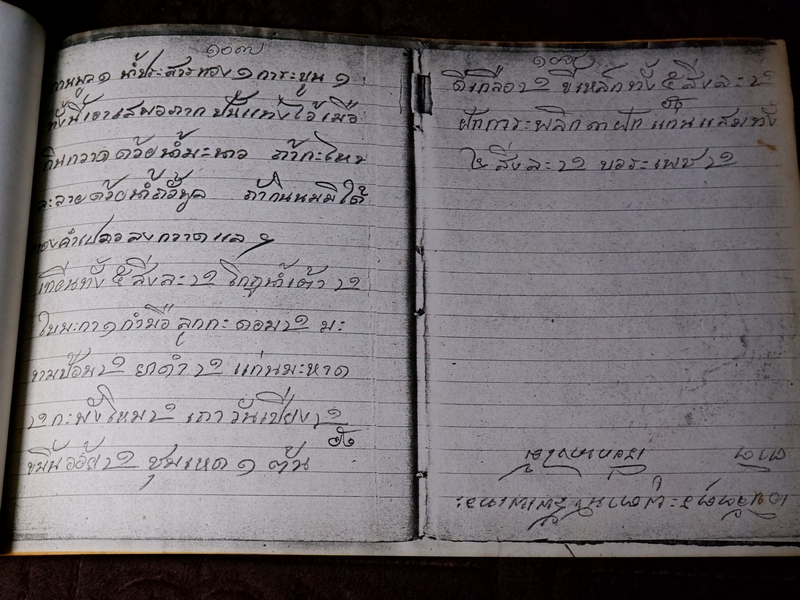 ๑๐๗
กานพลู ๑ น้ำประสารทอง ๑ การะบูน ๑
ทั้งนี้เอาเสมอภาก ปั้นแท่งไว้เมือ
กินกวาดด้วยน้ำมะนาว ถ้ากะไหน
ละลายด้วยน้ำ ถ้ากินนมมิได้
ทองคำเปลวลงกวาดแล ฯ
เทียนทั้ง ๕ สิ่งละ ๒ โกฎน้ำเต้า ๒
ใบมะกา ๑ กำมือ ลูกกะดอม ๒ มะ
ขามป้อม ๒ ยาดำ ๒ แก่นมะหาด
๒ กะพังโหม ๒ เถาวันเปียง ๒
ขมิ้นอ้อย ๒ ชุมเหด ๑ ต้น
๑๐๘
ดีเกลือ ๒ ขี้เหล็กทั้ง ๕ สิ่งละ ๒
ฝักการะพลึก ๓ ฝัก แก่นแสมทั้ง
๒ สิ่งละ ๒ บอระเพช ๒